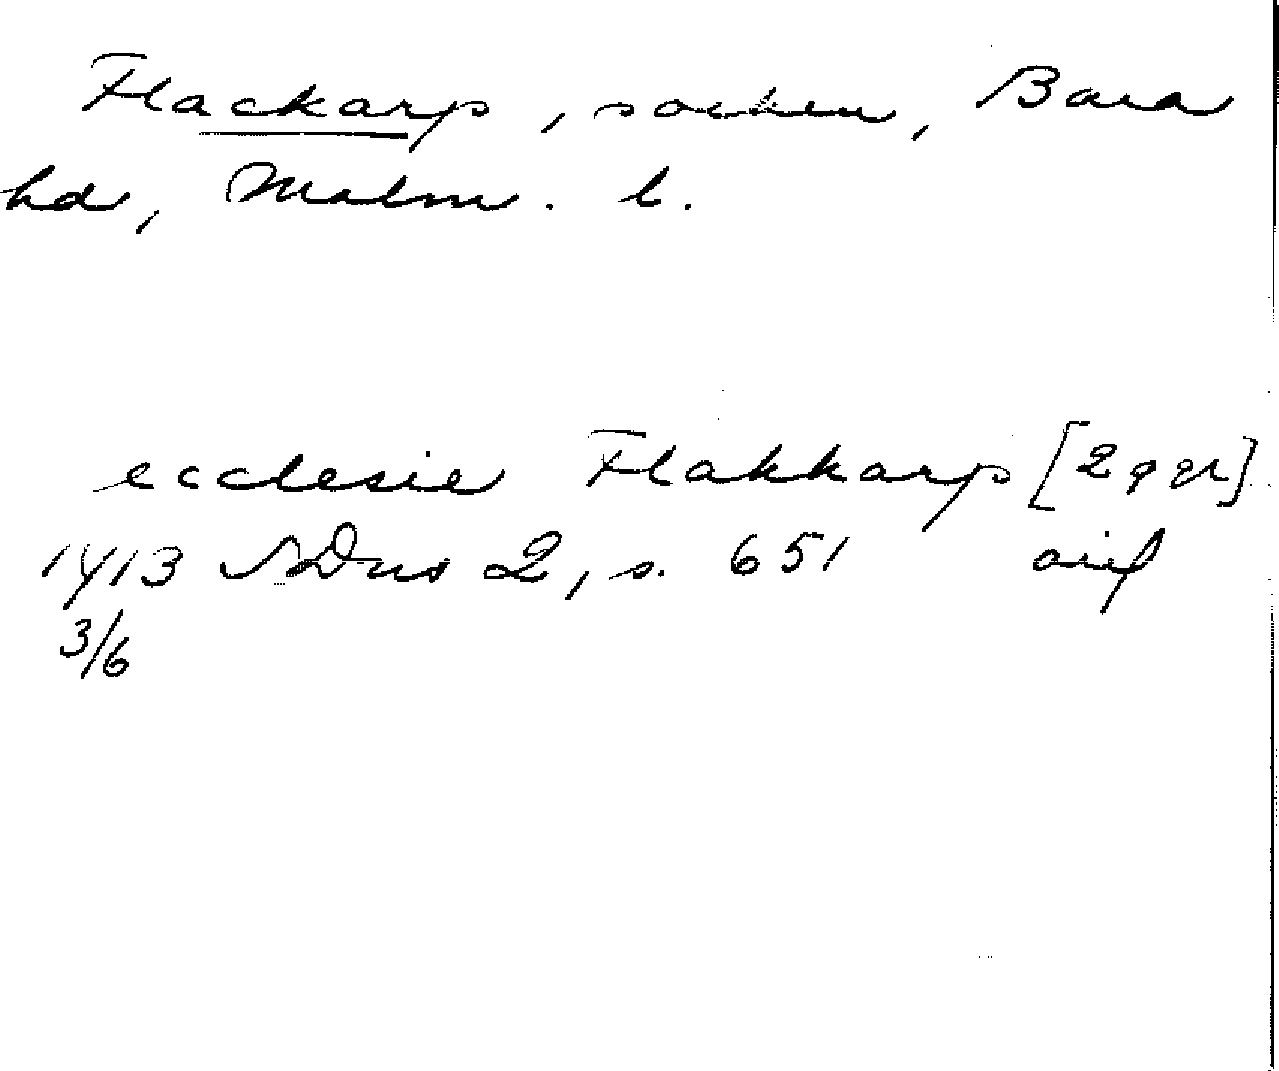 Flackarp, socken, Bara
hd, Malm. l.
ecclesie Flakkarp [2 ggr]
1413 SDns 2, s. 651 orig
3/6